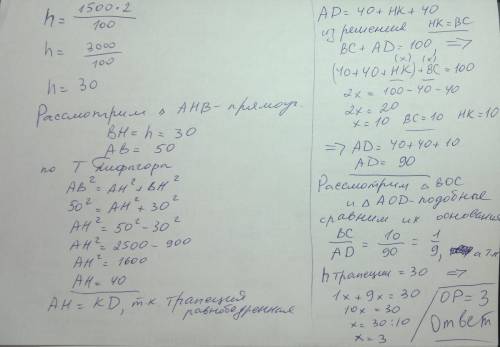 h = 1500·2 / 100
h = 3000 / 100
h = 30
Рассмотрим Δ AHB - прямоуг.
BH = h = 30
AB = 50
по Т Пифагора
AB² = AH² + BH²
50² = AH² + 30²
AH² = 50² - 30²
AH² = 2500 - 900
AH² = 1600
AH = 40
AH = KD, т.к. трапеция
равнобедренная
AD = 40 + HK + 40
из решения HK = BC
BC + AD = 100, =>
(x) (x)
(40 + 40 + HK) + BC = 100
2x = 100 - 40 - 40
2x = 20
x = 10 BC = 10 HK = 10
=> AD = 40 + 40 + 10
AD = 90
Рассмотрим Δ BOC
и Δ AOD - подобные
сравним их основания
BC / AD = 10 / 90 = 1 / 9, а т.к.
h трапеции = 30 =>
1x + 9x = 30
10x = 30
x = 30:10
x = 3
OP = 3
Ответ